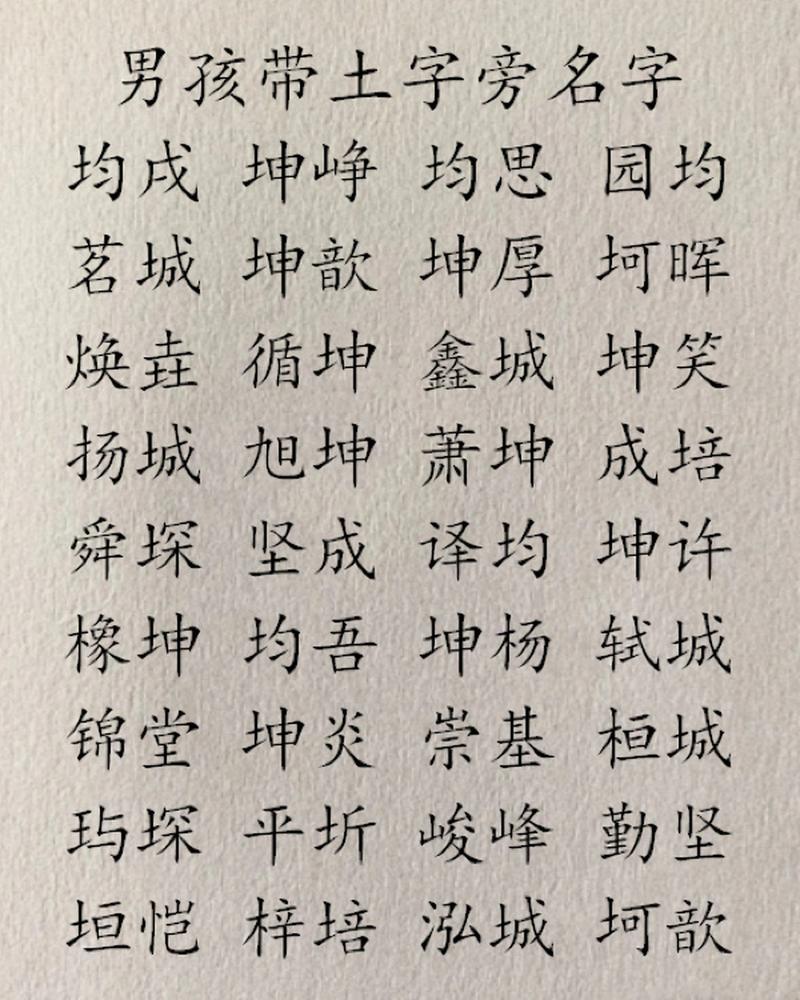 男孩带土字旁名字
均戌 坤峥 均思 园均
茗城 坤歆 坤厚 坷晖
焕垚 循坤 鑫城 坤笑
扬城 旭坤 萧坤 成培
舜埮 坚成 译均 坤许
橡坤 均吾 坤杨 轼城
锦堂 坤炎 崇基 桓城
玙埮 平圻 峻峰 勤坚
垣恺 梓培 泓城 坷歆